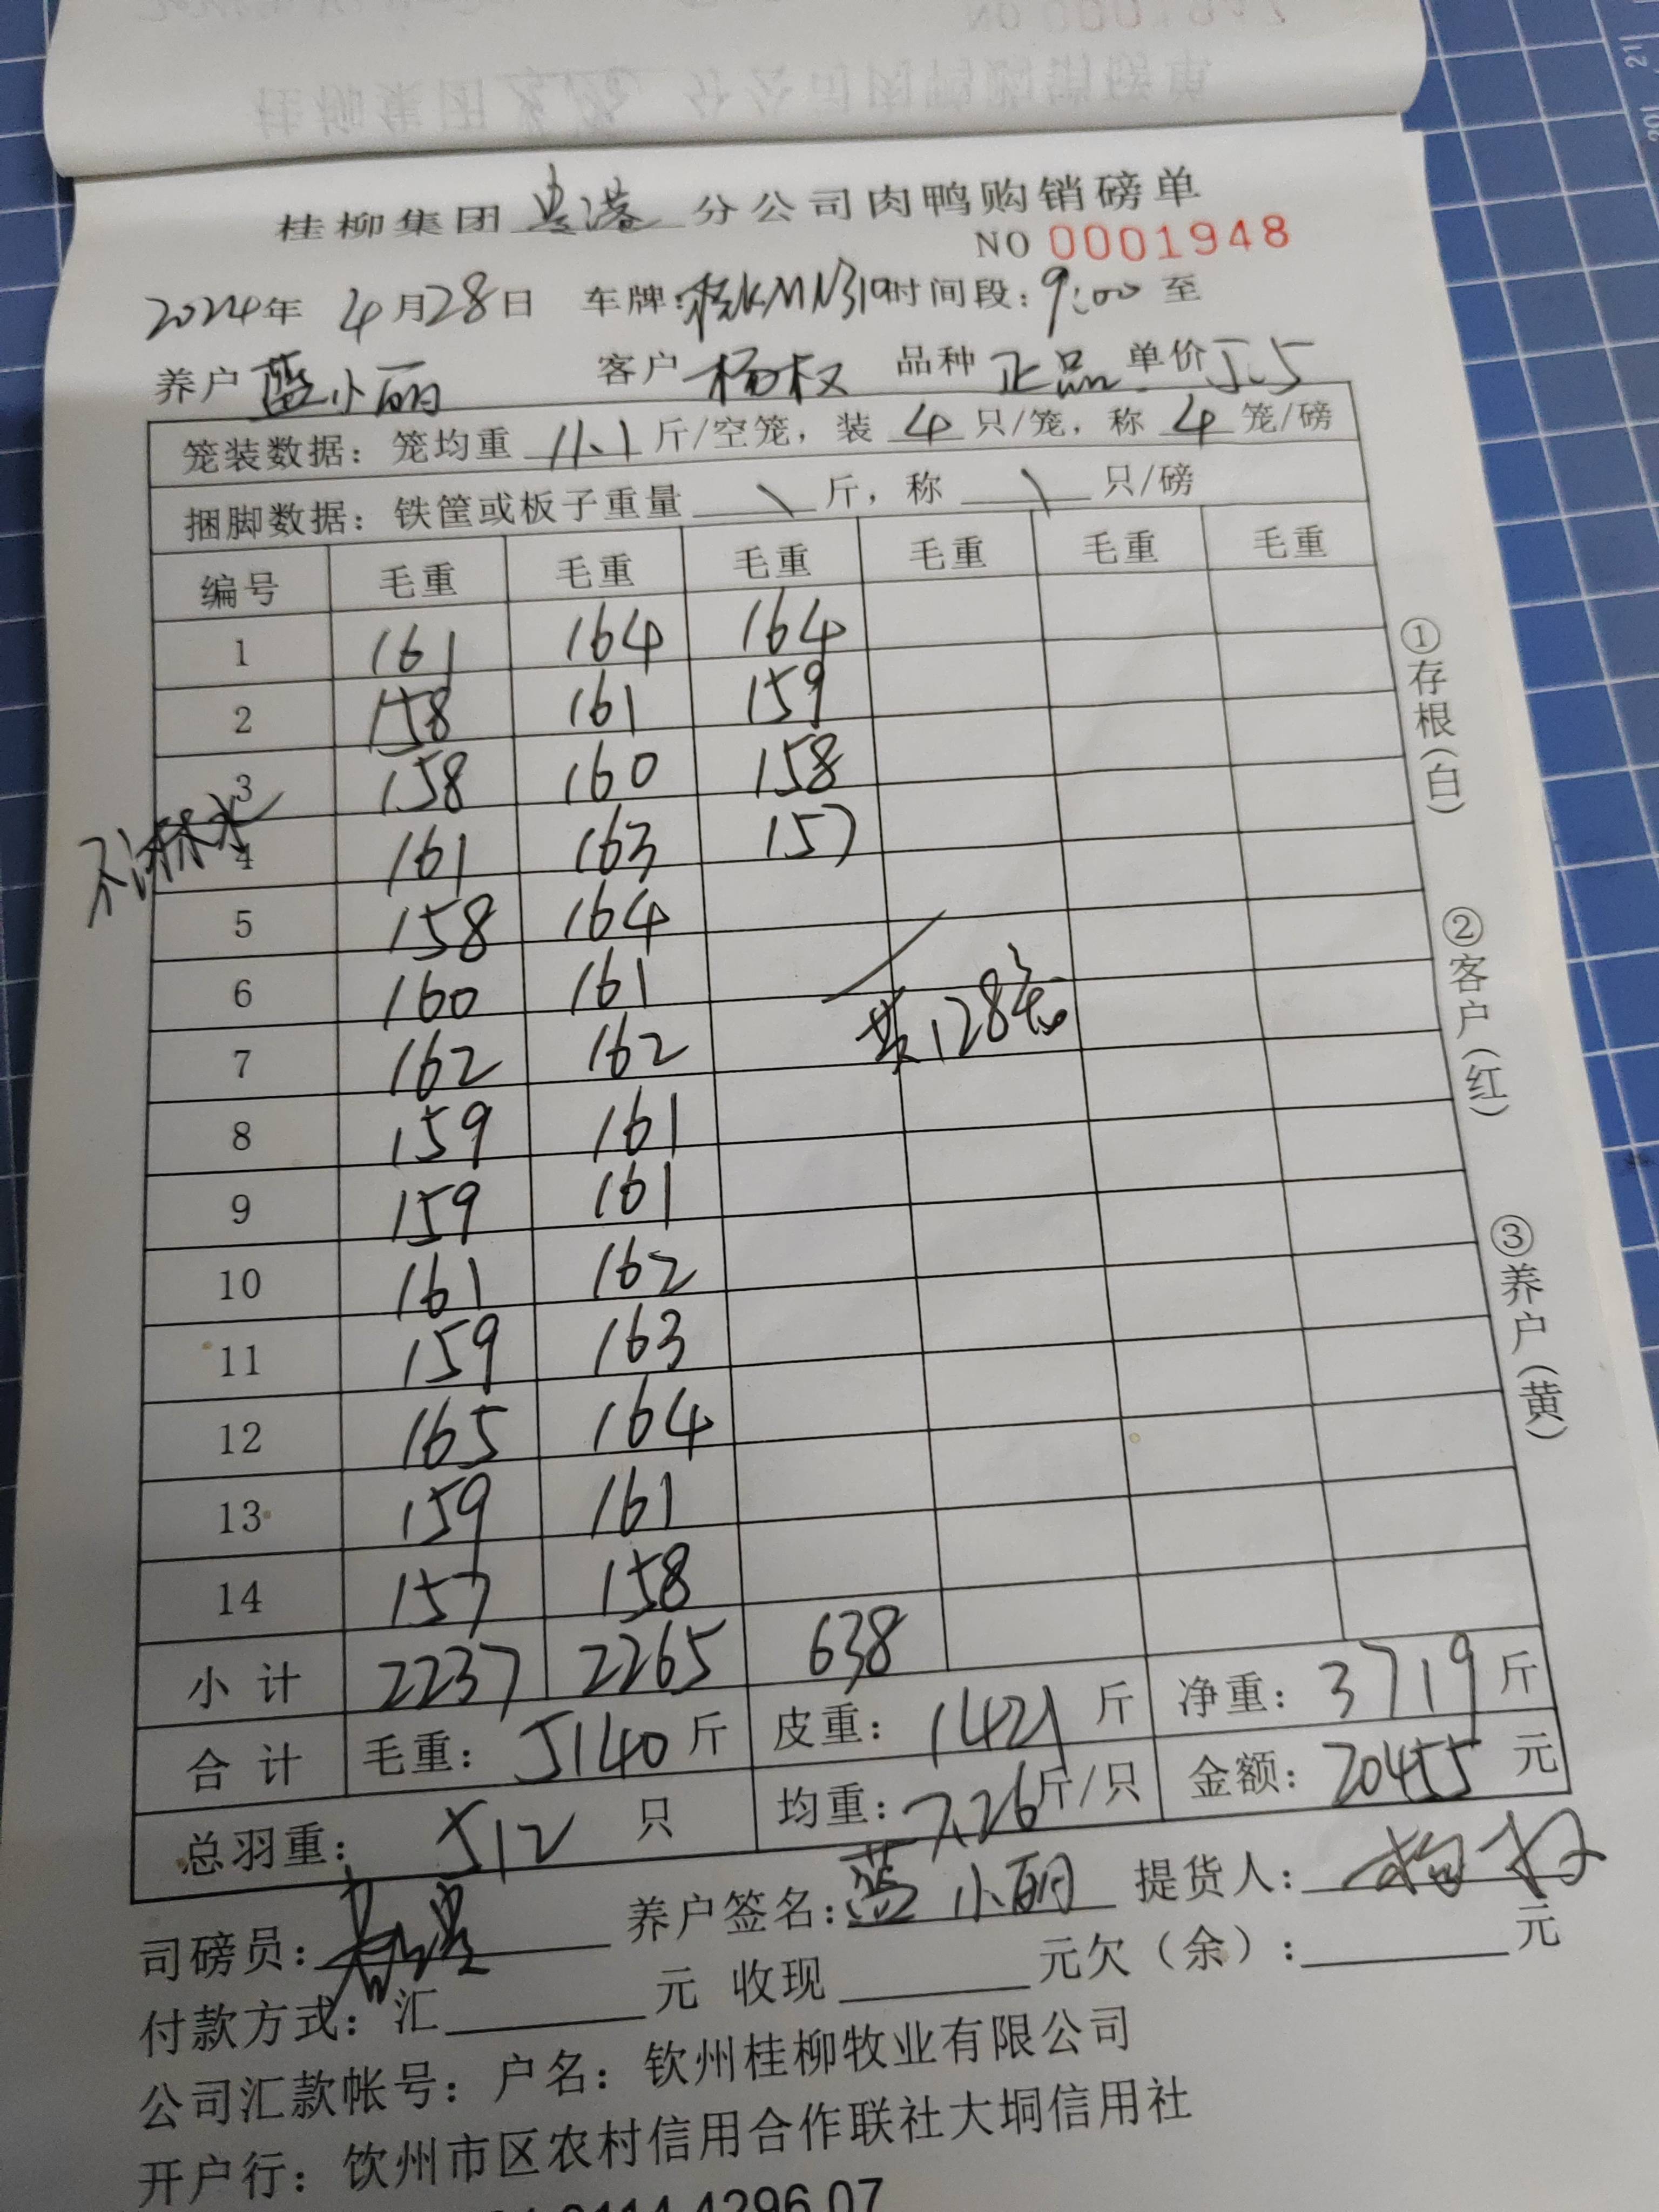 桂柳集团贵港分公司肉鸭购销磅单
NO 0001948
2024年 4月28日 车牌:桂KMN319时间段:9:00 至
养户 蓝小丽 客户 杨权 品种 正品 单价5.5
笼装数据:笼均重 11.1 斤/空笼,装 4 只/笼,称 4 笼/磅
捆脚数据:铁筐或板子重量 \ 斤,称 \ 只/磅
编号 毛重 毛重 毛重 毛重 毛重 毛重
1 161 164 164
2 158 161 159
3 158 160 158
不淋水
4 161 163 157
5 158 164
6 160 161
共128笼
7 162 162
8 159 161
9 159 161
10 161 162
11 159 163
12 165 164
13 159 161
14 157 158
小计 2237 2265 638
合计 毛重:5140斤 皮重:1421斤 净重:3719斤
总羽重:512只 均重:7.26斤/只 金额:20455元
司磅员: 养户签名:蓝小丽 提货人:杨权
付款方式:汇 元 收现 元欠(余): 元
公司汇款帐号:户名:钦州桂柳牧业有限公司
开户行:钦州市区农村信用合作联社大垌信用社
4296 07
①存根(白)
②客户(红)
③养户(黄)